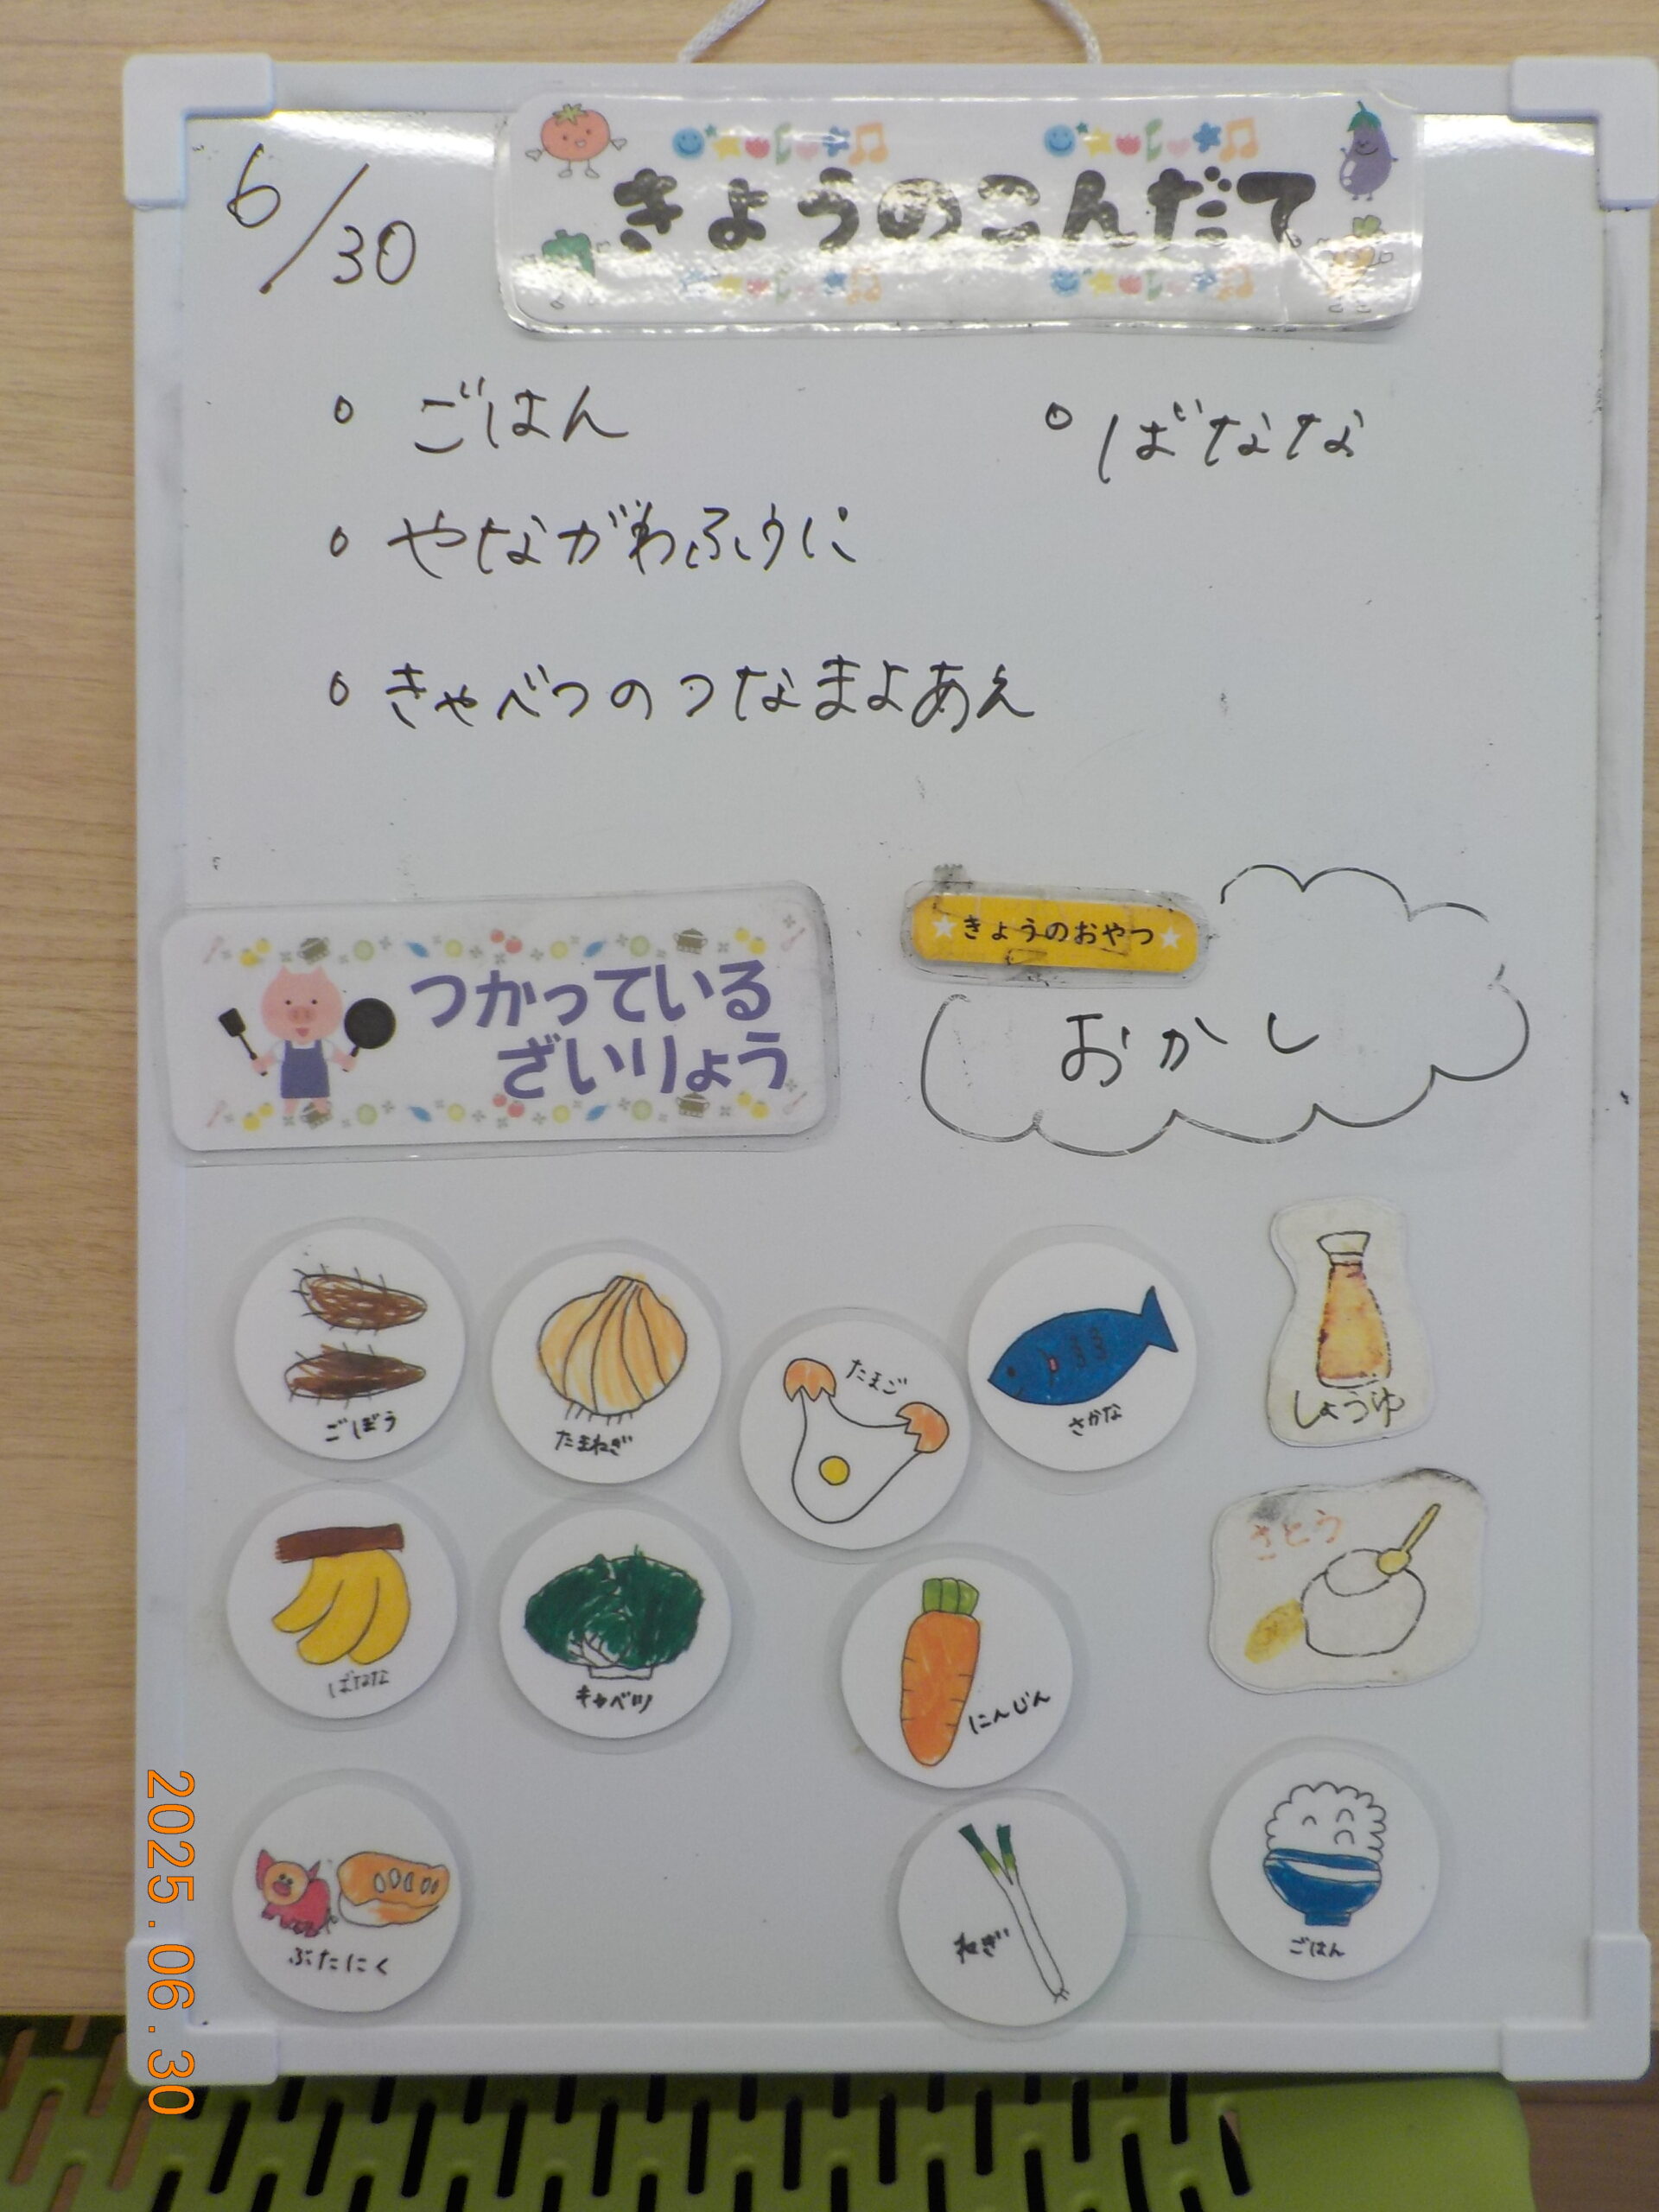 6/30
きょうのこんだて
○ ごはん
○ やながわふうに
○ きゃべつのつなまよあえ
○ ばなな
つかっている
ざいりょう
きょうのおやつ
おかし
ごぼう
たまねぎ
たまご
さかな
しょうゆ
ばなな
キャベツ
にんじん
さとう
ぶたにく
ねぎ
ごはん
2025.06.30